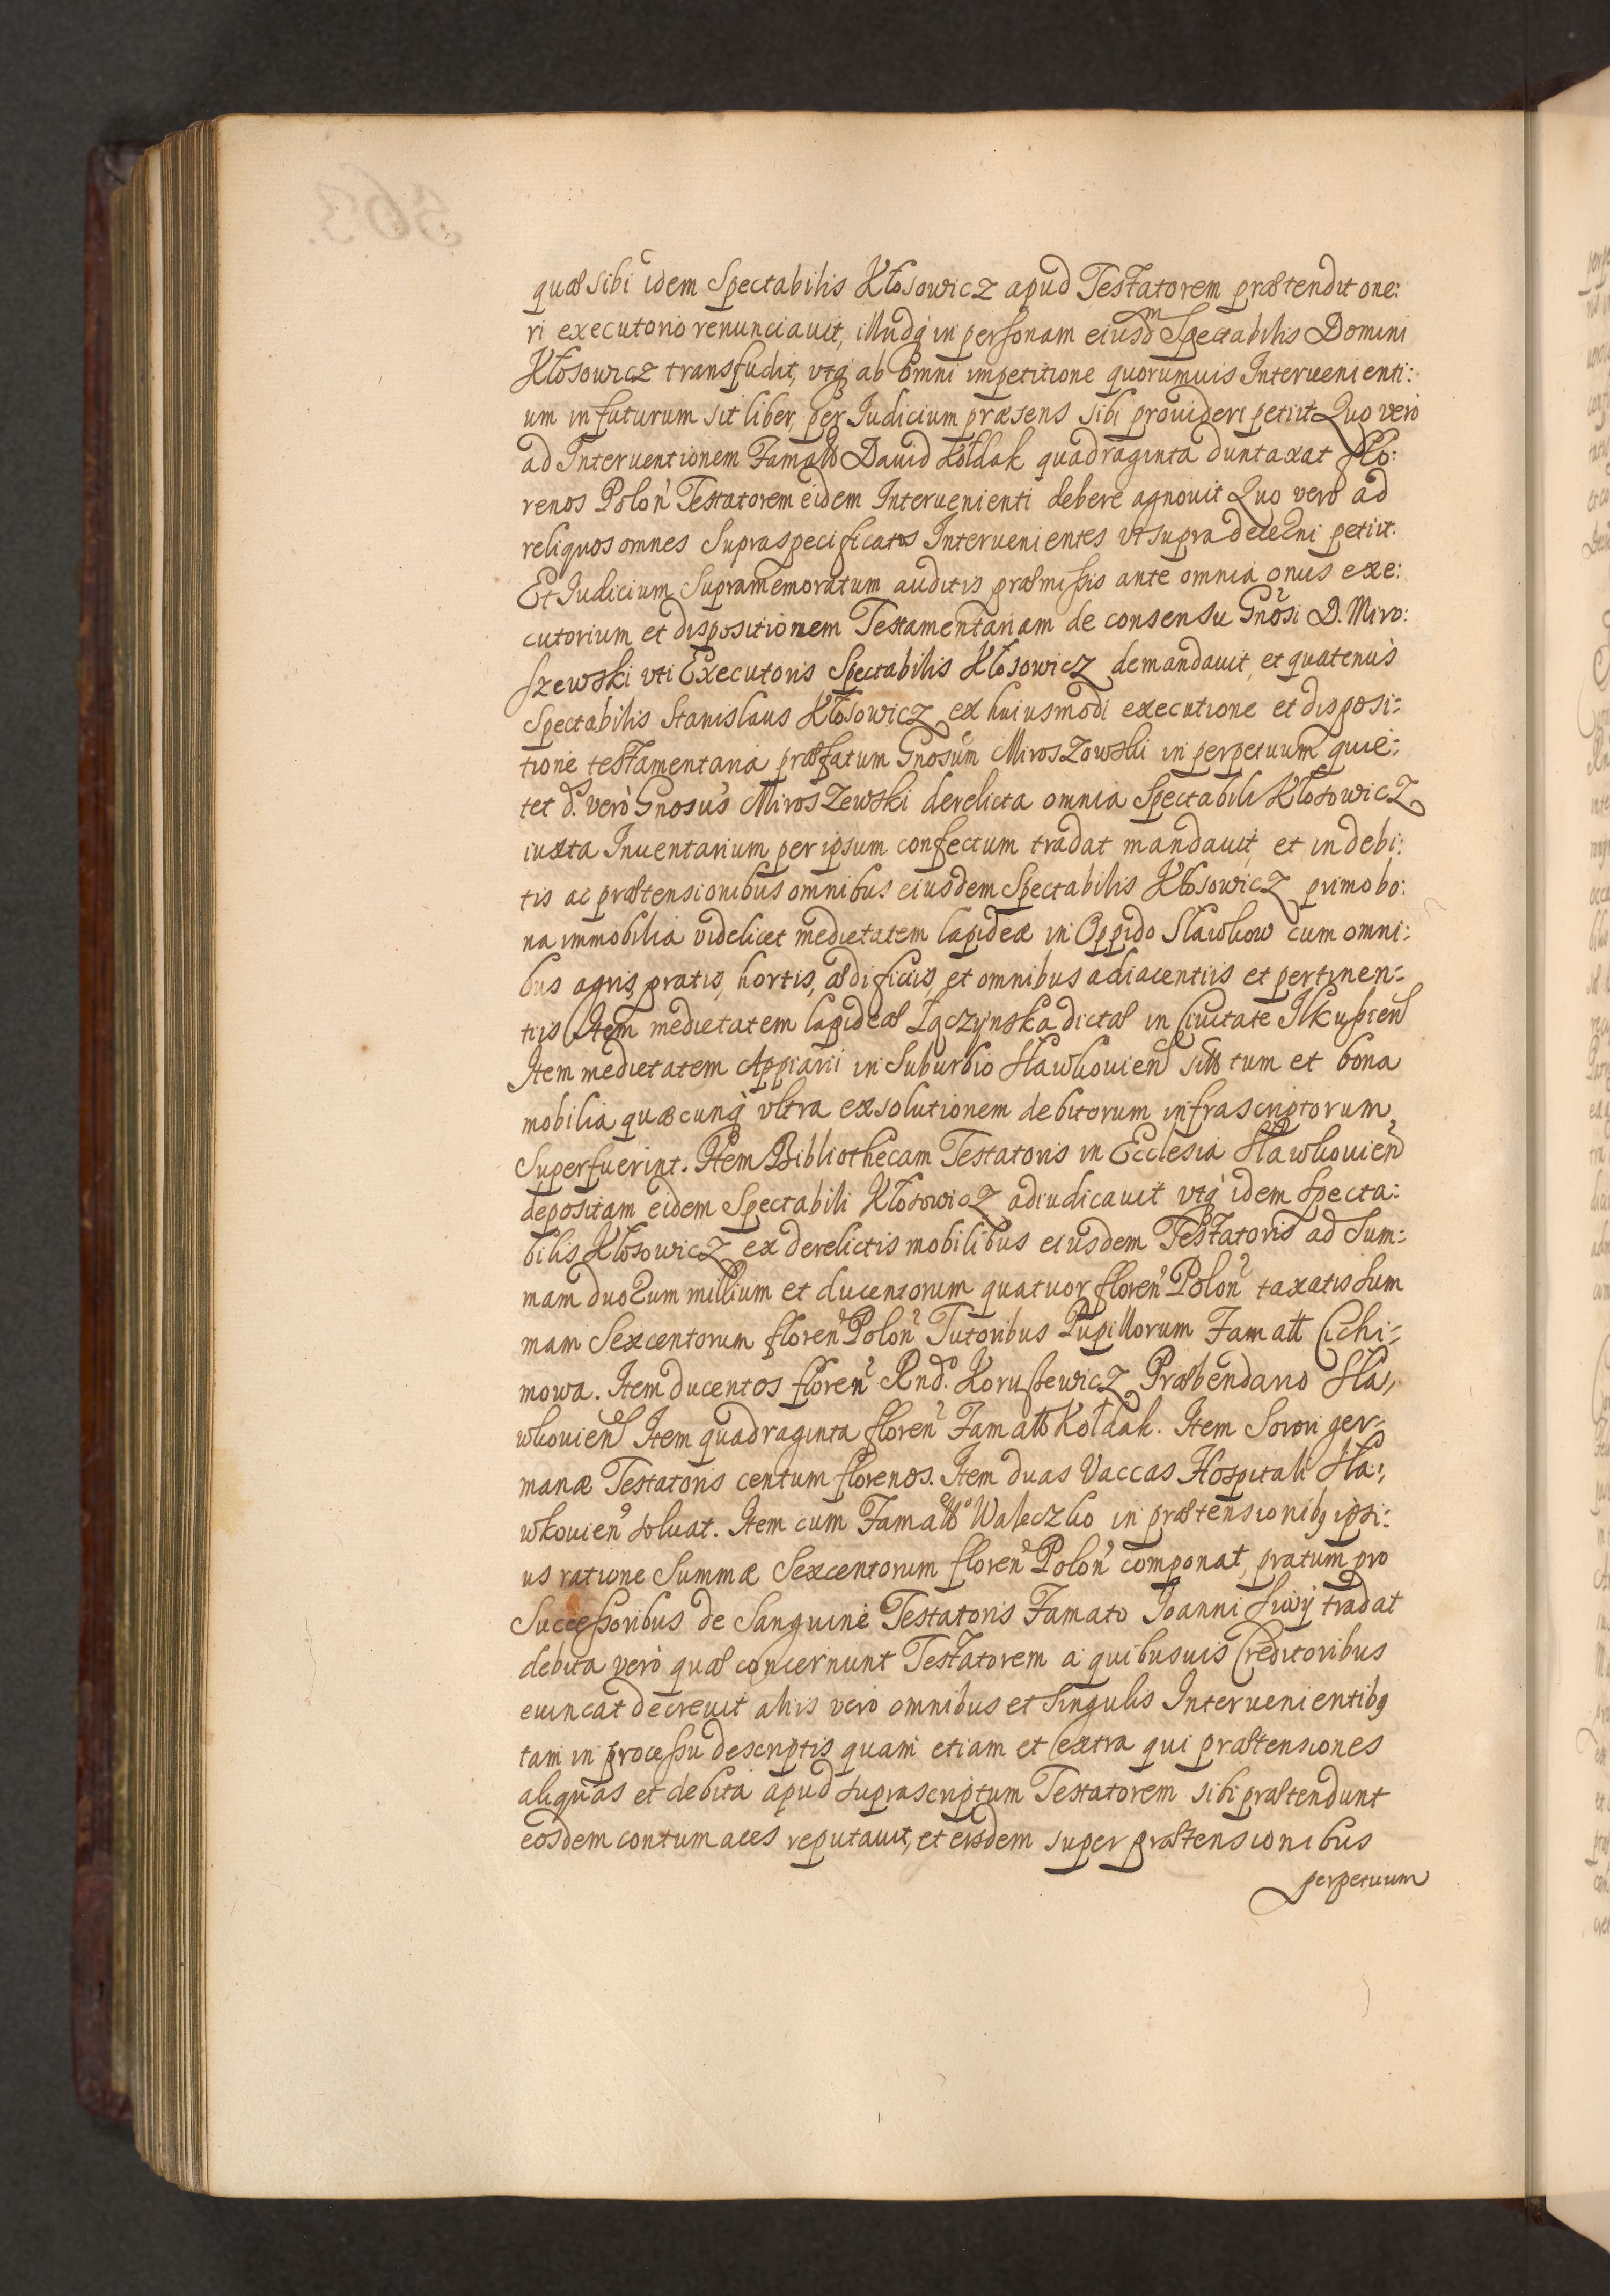 quæ sibi idem Spectabilis Kłosowicz apud Testatorem prætendit one:
ri executorio renunciauit, illudq́ in personam eiusdm Spectabilis Domini
Kłosowicz transfudit, vtq́ ab omni impetitione quorumuis Interuenienti:
um in futurum sit liber, per Iudicium præsens sibi prouideri petiit Quo verò
ad Interuentionem Famatt Dauid Kołdak quadraginta duntaxat flo:
renos Polon̄ Testatorem eidem Interuenienti debere agnouit Quo vero ad
reliquos omnes Supraspecificatos Interuenientes vt supra decerni petiit.
Et Iudicium Supramemoratum auditis præmissis ante omnia onus exe:
cutorium et dispositionem Testamentariam de consensu Gnosi D. Miro:
szewski vti Executoris Spectabilis Kłosowicz demandauit, et quatenùs
Spectabilis Stanislaus Kłosowicz ex huiusmodi executione et disposi:
tione testamentaria præfatum Gnosum Miroszowski in perpetuum quie:
tet d. verò Gnosus Miroszewski derelicta omnia Spectabili Kłosowicz
iuxta Inuentarium per ipsum confectum tradat mandauit, et in debi:
tis ac prætensionibus omnibus eiusdem Spectabilis Kłosowicz primo bo:
na immobilia videlicet medietatem lapideæ in Oppido Sławkow cum omni:
bus agris, pratis, hortis, ædificiis, et omnibus adiacentiis et pertinen:
tiis Item medietatem lapideæ Łączynska dictæ in Ciuitate Ilkussien̄
Item medietatem Appiarii in Suburbio Sławkouien̄ sitt tum et bona
mobilia quæcunq́ vltra exsolutionem debitorum infrascriptorum
Superfuerint. Item Bibliothecam Testatoris in Ecclesia Sławkouien̄
depositam eidem Spectabili Kłosowicz adiudicauit vtq́ idem Specta:
bilis Kłosowicz ex derelictis mobilibus eiusdem Testatoris ad Sum:
mam duorum millium et ducentorum quatuor floren̄ Polon̄ taxatis Sum
mam Sexcentorum floren̄ Polon̄ Tutoribus Pupillorum Famatt Cichi:
mowa. Item ducentos floren̄ Rnd. Korussewicz Præbendario Sła,
wkouien̄ Item quadraginta floren̄ Famatt Kołdak. Item Sorori ger:
manæ Testatoris centum florenos. Item duas Vaccas Hospitali Sła:,
wkouien̄ soluat. Item cum Famatto Waleczko in prætensionibq ipsi:
us ratione Summæ Sexcentorum floren̄ Polon̄ componat, pratum pro
Successoribus de Sanguine Testatoris Famato Ioanni Siwÿ tradat
debita verò quæ concernunt Testatorem a quibusuis Creditoribus
euincat decreuit aliis vero omnibus et Singulis Interuenientibq
tam in processu descriptis quam etiam et extra qui prætensiones
aliquas et debita apud Suprascriptum Testatorem sibi prætendunt
eosdem contumaces reputauit, et eisdem super prætensionibus
perpetuum